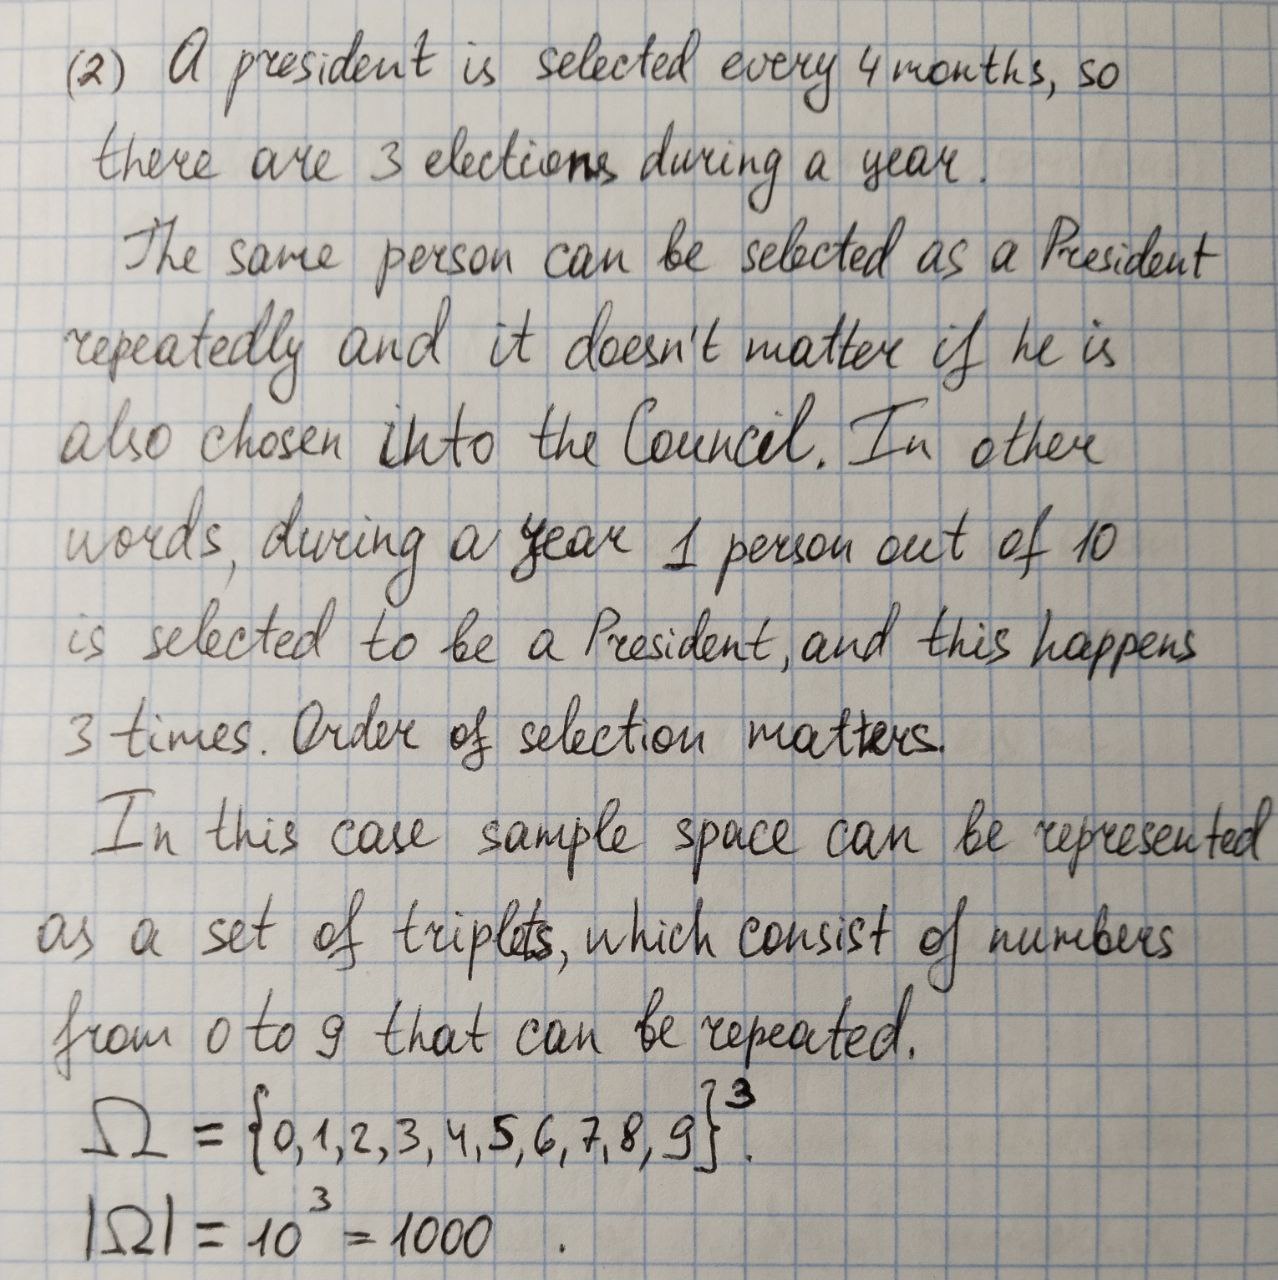 (2) A president is selected every 4 months, so
there are 3 elections during a year.
The same person can be selected as a President
repeatedly and it doesn't matter if he is
also chosen into the Council. In other
words, during a year 1 person out of 10
is selected to be a President, and this happens
3 times. Order of selection matters.
In this case sample space can be represented
as a set of triplets, which consist of numbers
from 0 to 9 that can be repeated.
Ω = {0,1,2,3,4,5,6,7,8,9}³.
|Ω| = 10³ = 1000 .